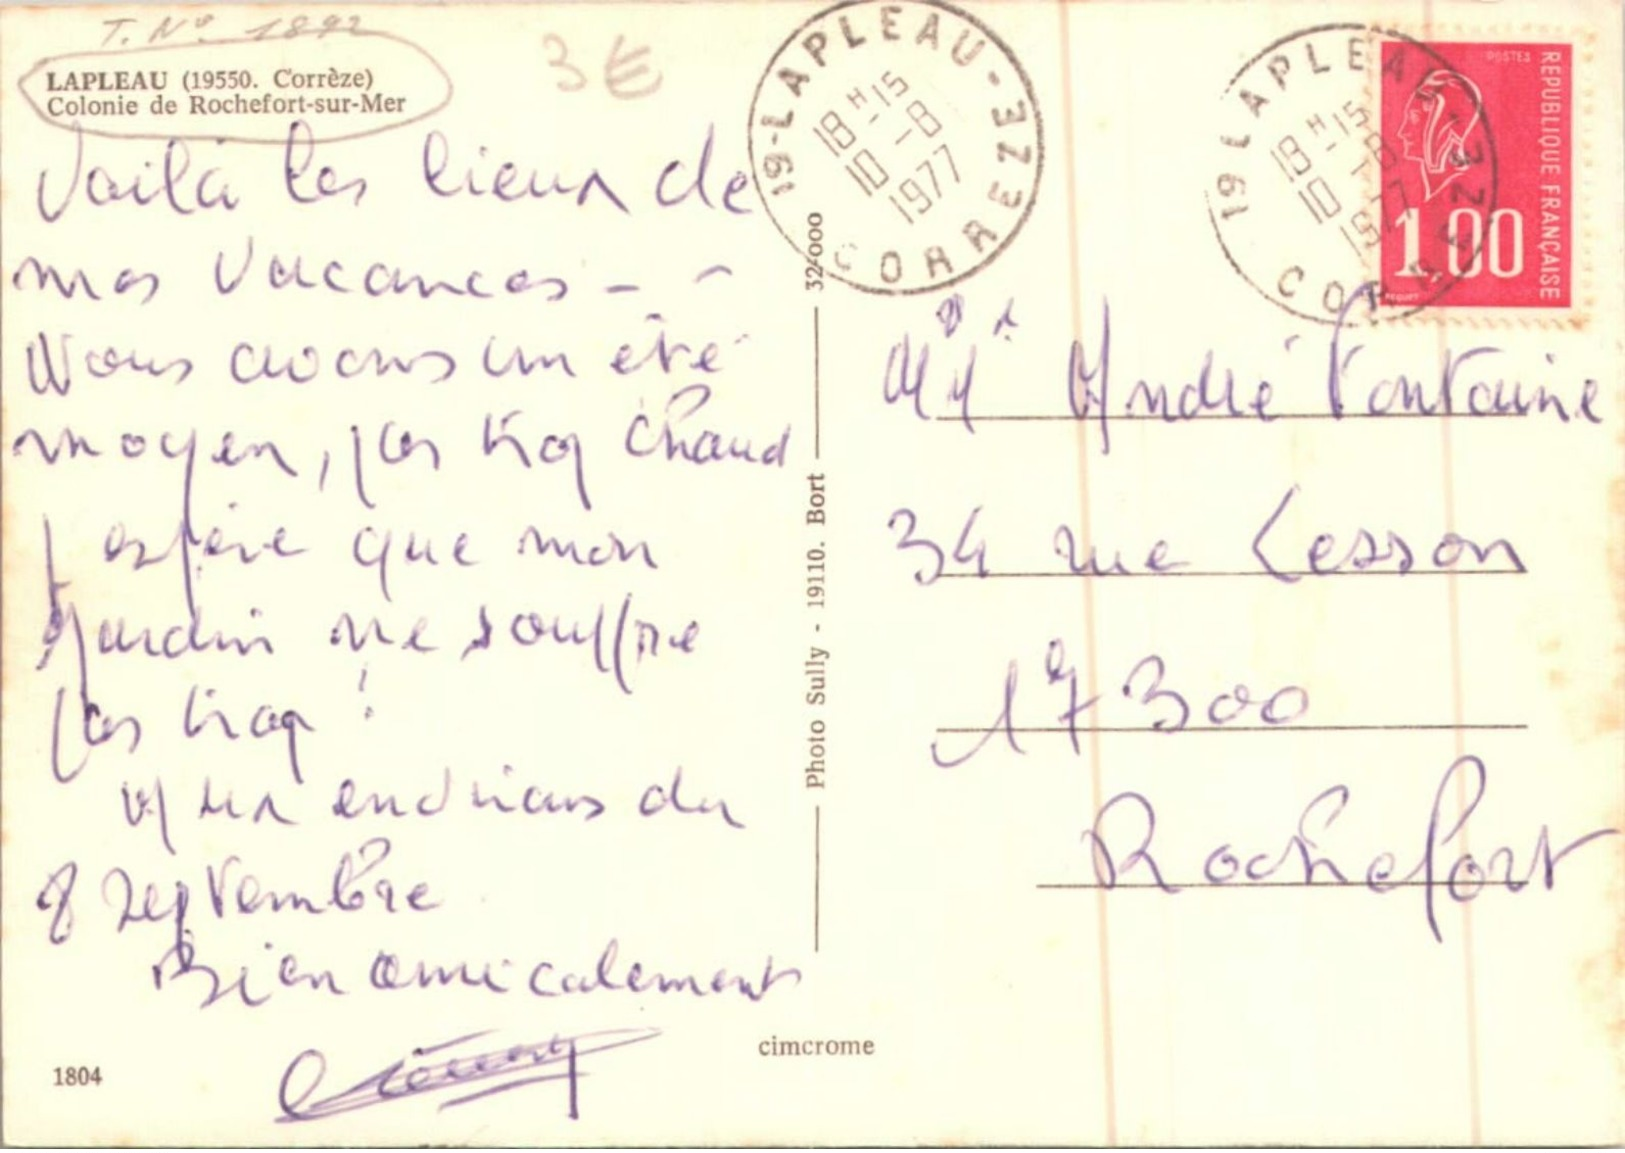 T. N° 1892
3 €
LAPLEAU (19550. Corrèze)
Colonie de Rochefort-sur-Mer
Voilà les lieux de
mes vacances - -
Nous avons un été
moyen, pas trop chaud
J espère que mon
jardin ne souffre
pas trop !
endrions du
8 septembre
Bien amicalement
1804
cimcrome
Photo Sully - 19110. Bort
32-000
19-LAPLEAU-
CORRÈZE
18 H-15
10 -8
1977
19 LAPLEAU
CORRÈZE
18 H-15
10 -8
1977
POSTES
REPUBLIQUE FRANÇAISE
1.00
BEQUET
André Fontaine
34 rue Lesson
17300
Rochefort